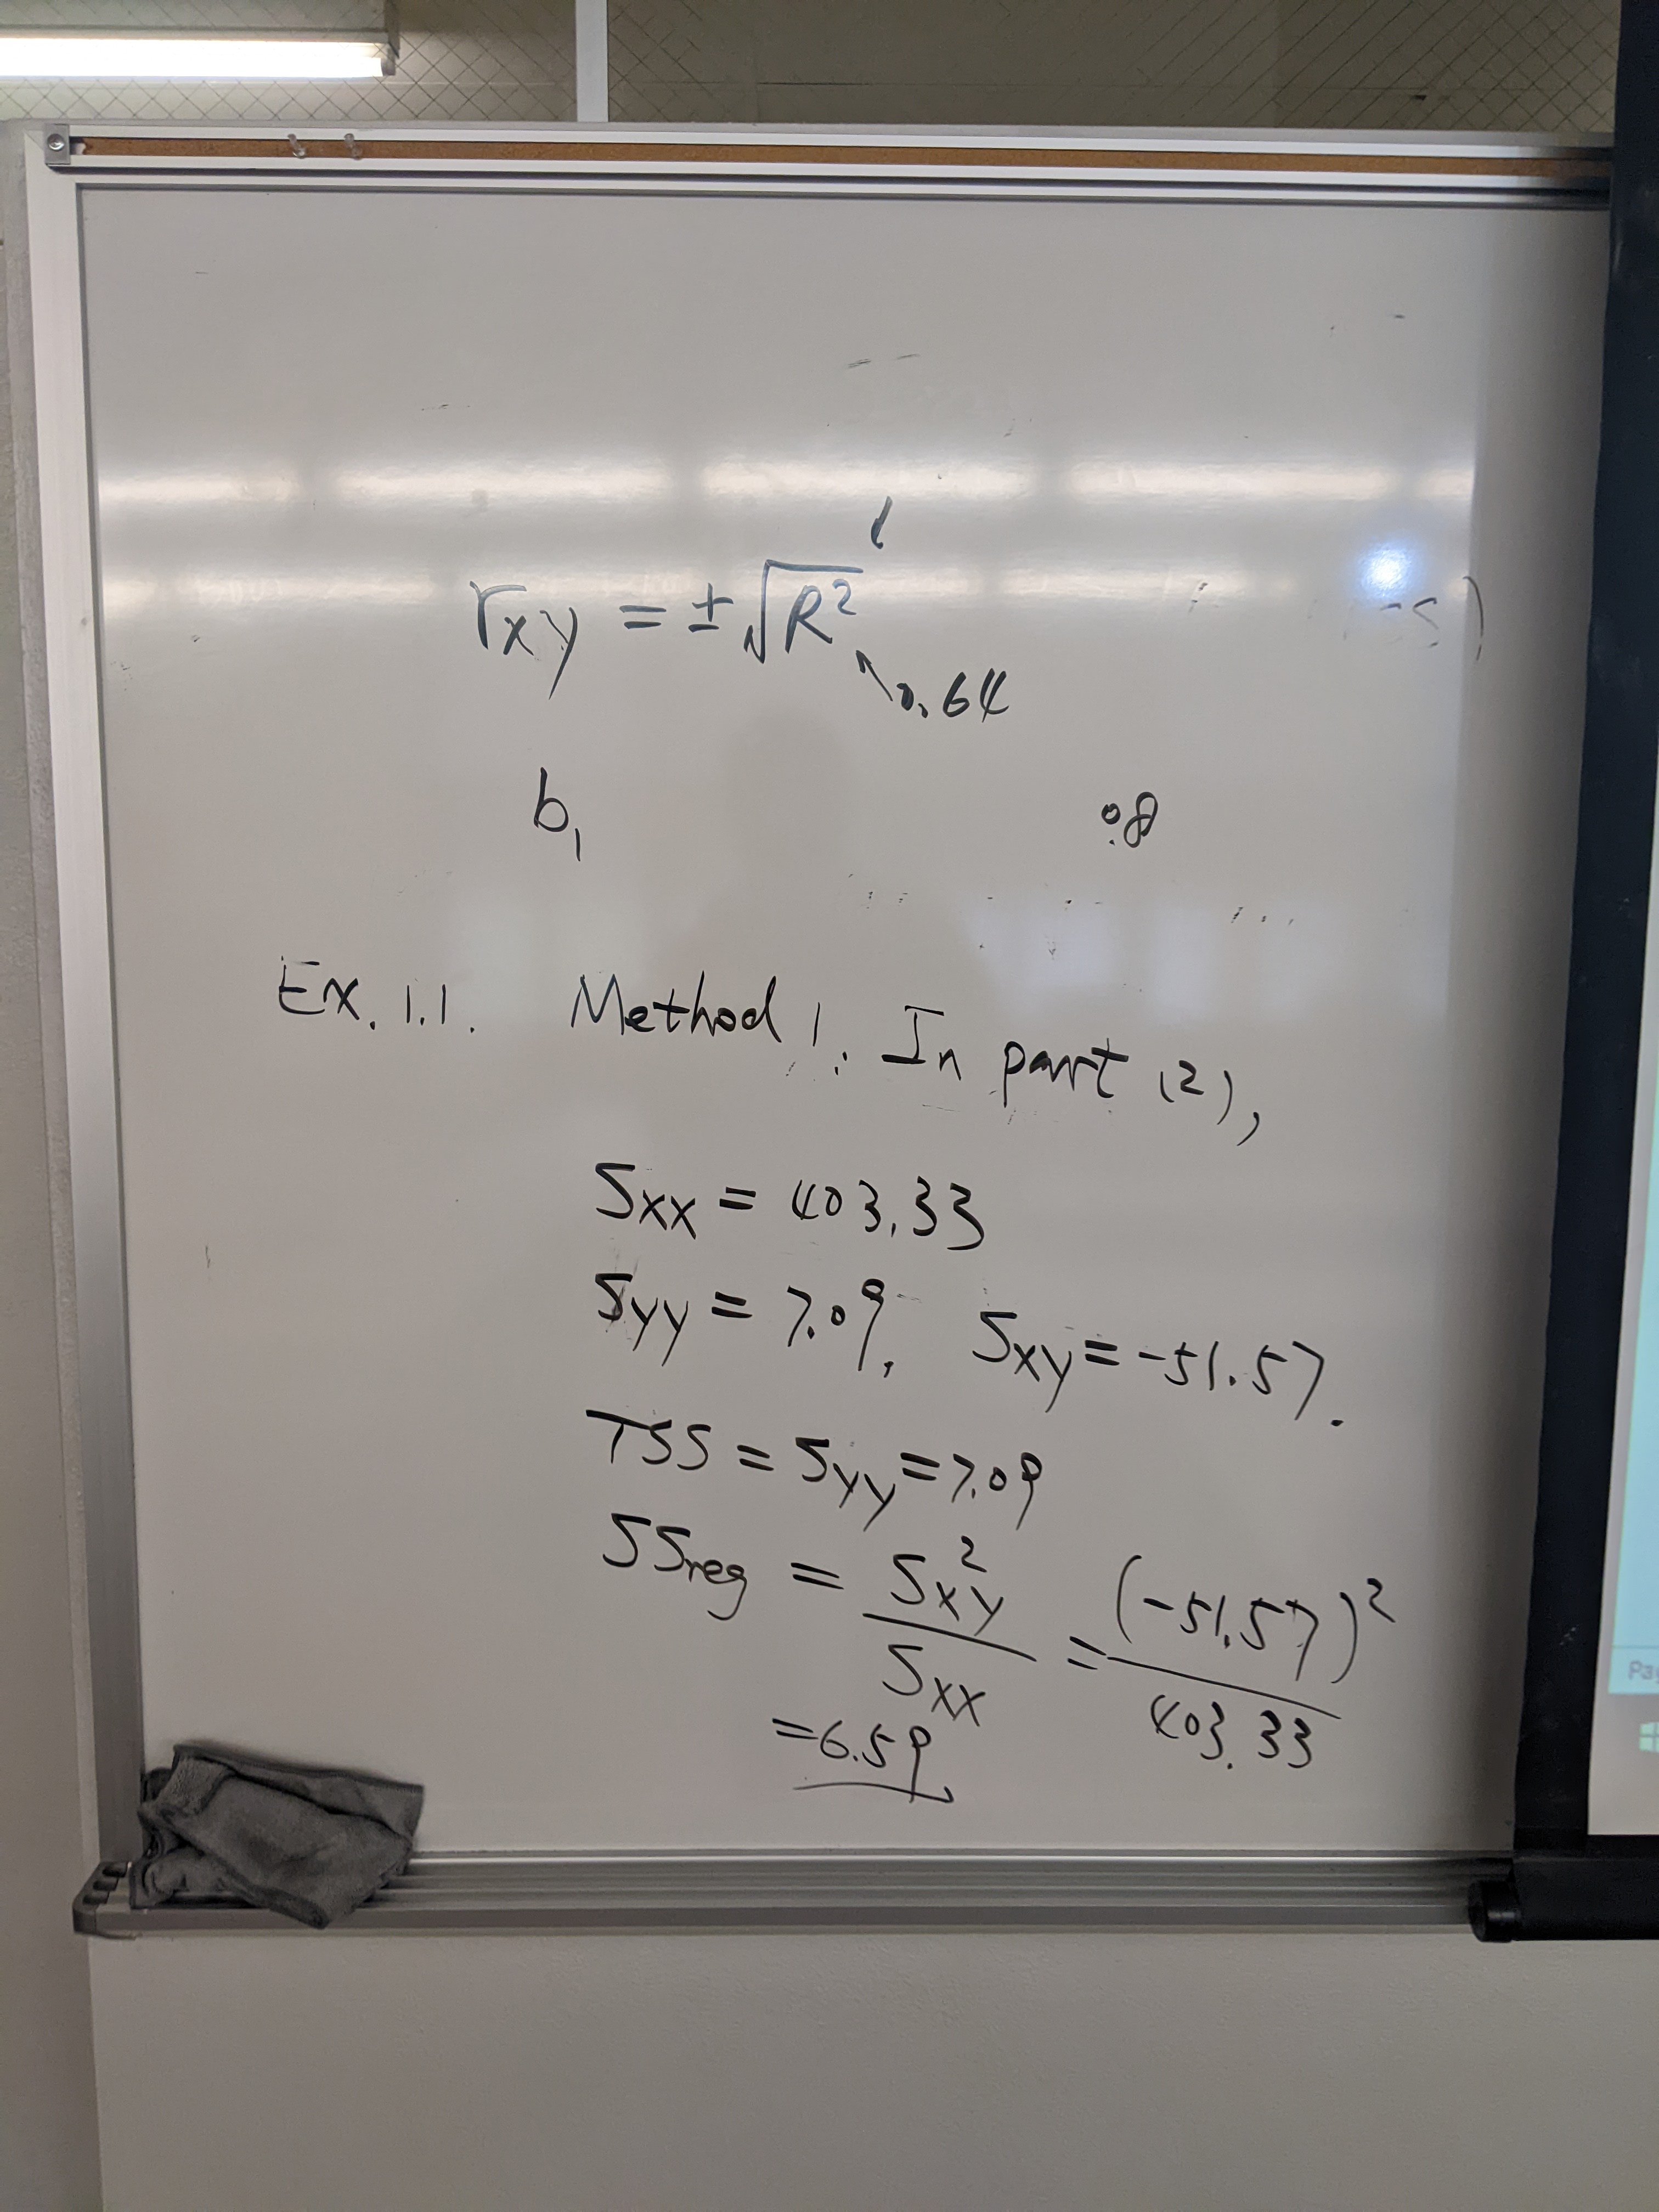 r_xy = ± √R²
0.64
b₁
0.8
Ex. 1.1. Method 1. In part (2),
Sxx = 403.33
Syy = 7.09, Sxy = -51.57.
TSS = Syy = 7.09
SSreg = Sxy² / Sxx = (-51.57)² / 403.33
= 6.59